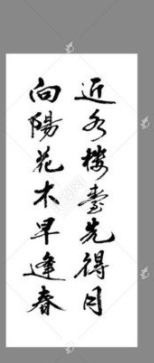 近水楼臺先得月
向陽花木早逢春